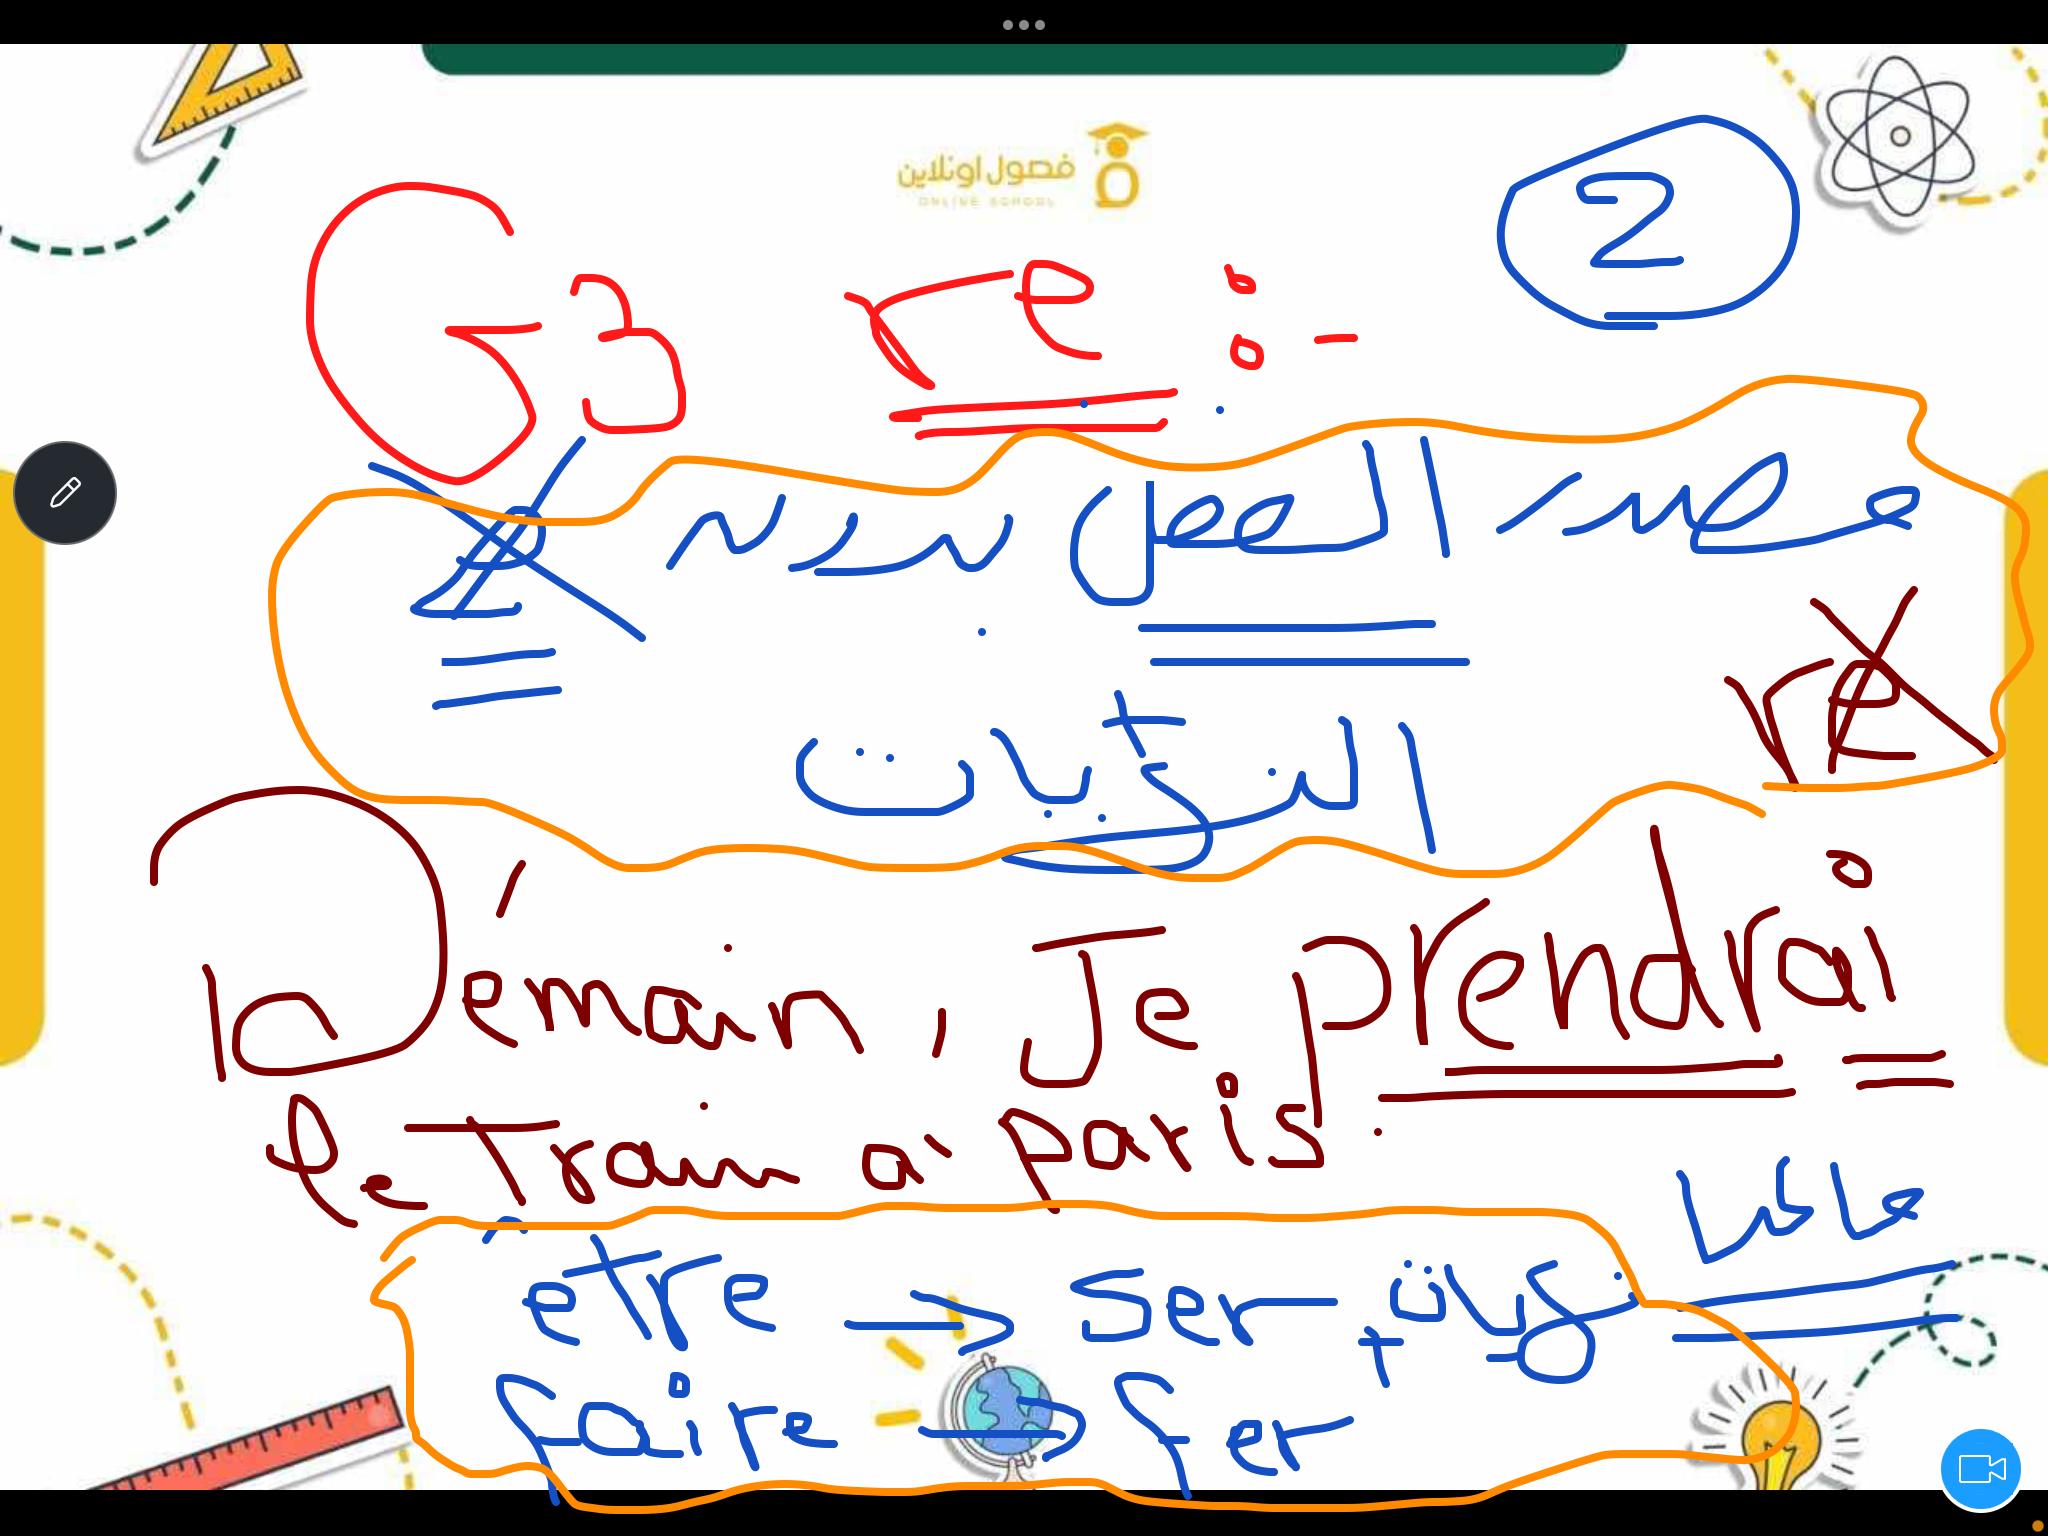 فصول اونلاين
ONLINE SCHOOL
2
G3 re :-
مصدر الفعل بدون e
re
النزكبات
Démain, Je prendrai
le Train à paris.
حاشا
être → ser
faire → fer